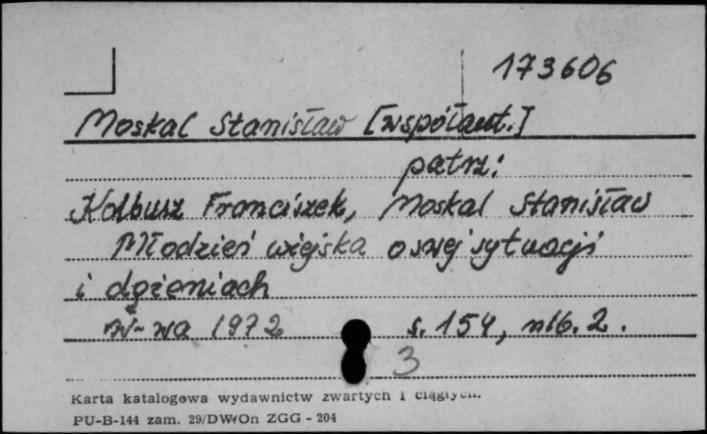 173606
Moskal Stanisław [współaut.]
patrz:
Kolbusz Franciszek, Moskal Stanisław
Młodzież wiejska o swej sytuacji
i dążeniach
W-wa 1972 s. 154, nlb. 2.
3
Karta katalogowa wydawnictw zwartych i ciągłych.
PU-B-144 zam. 29/DWłOn ZGG - 204